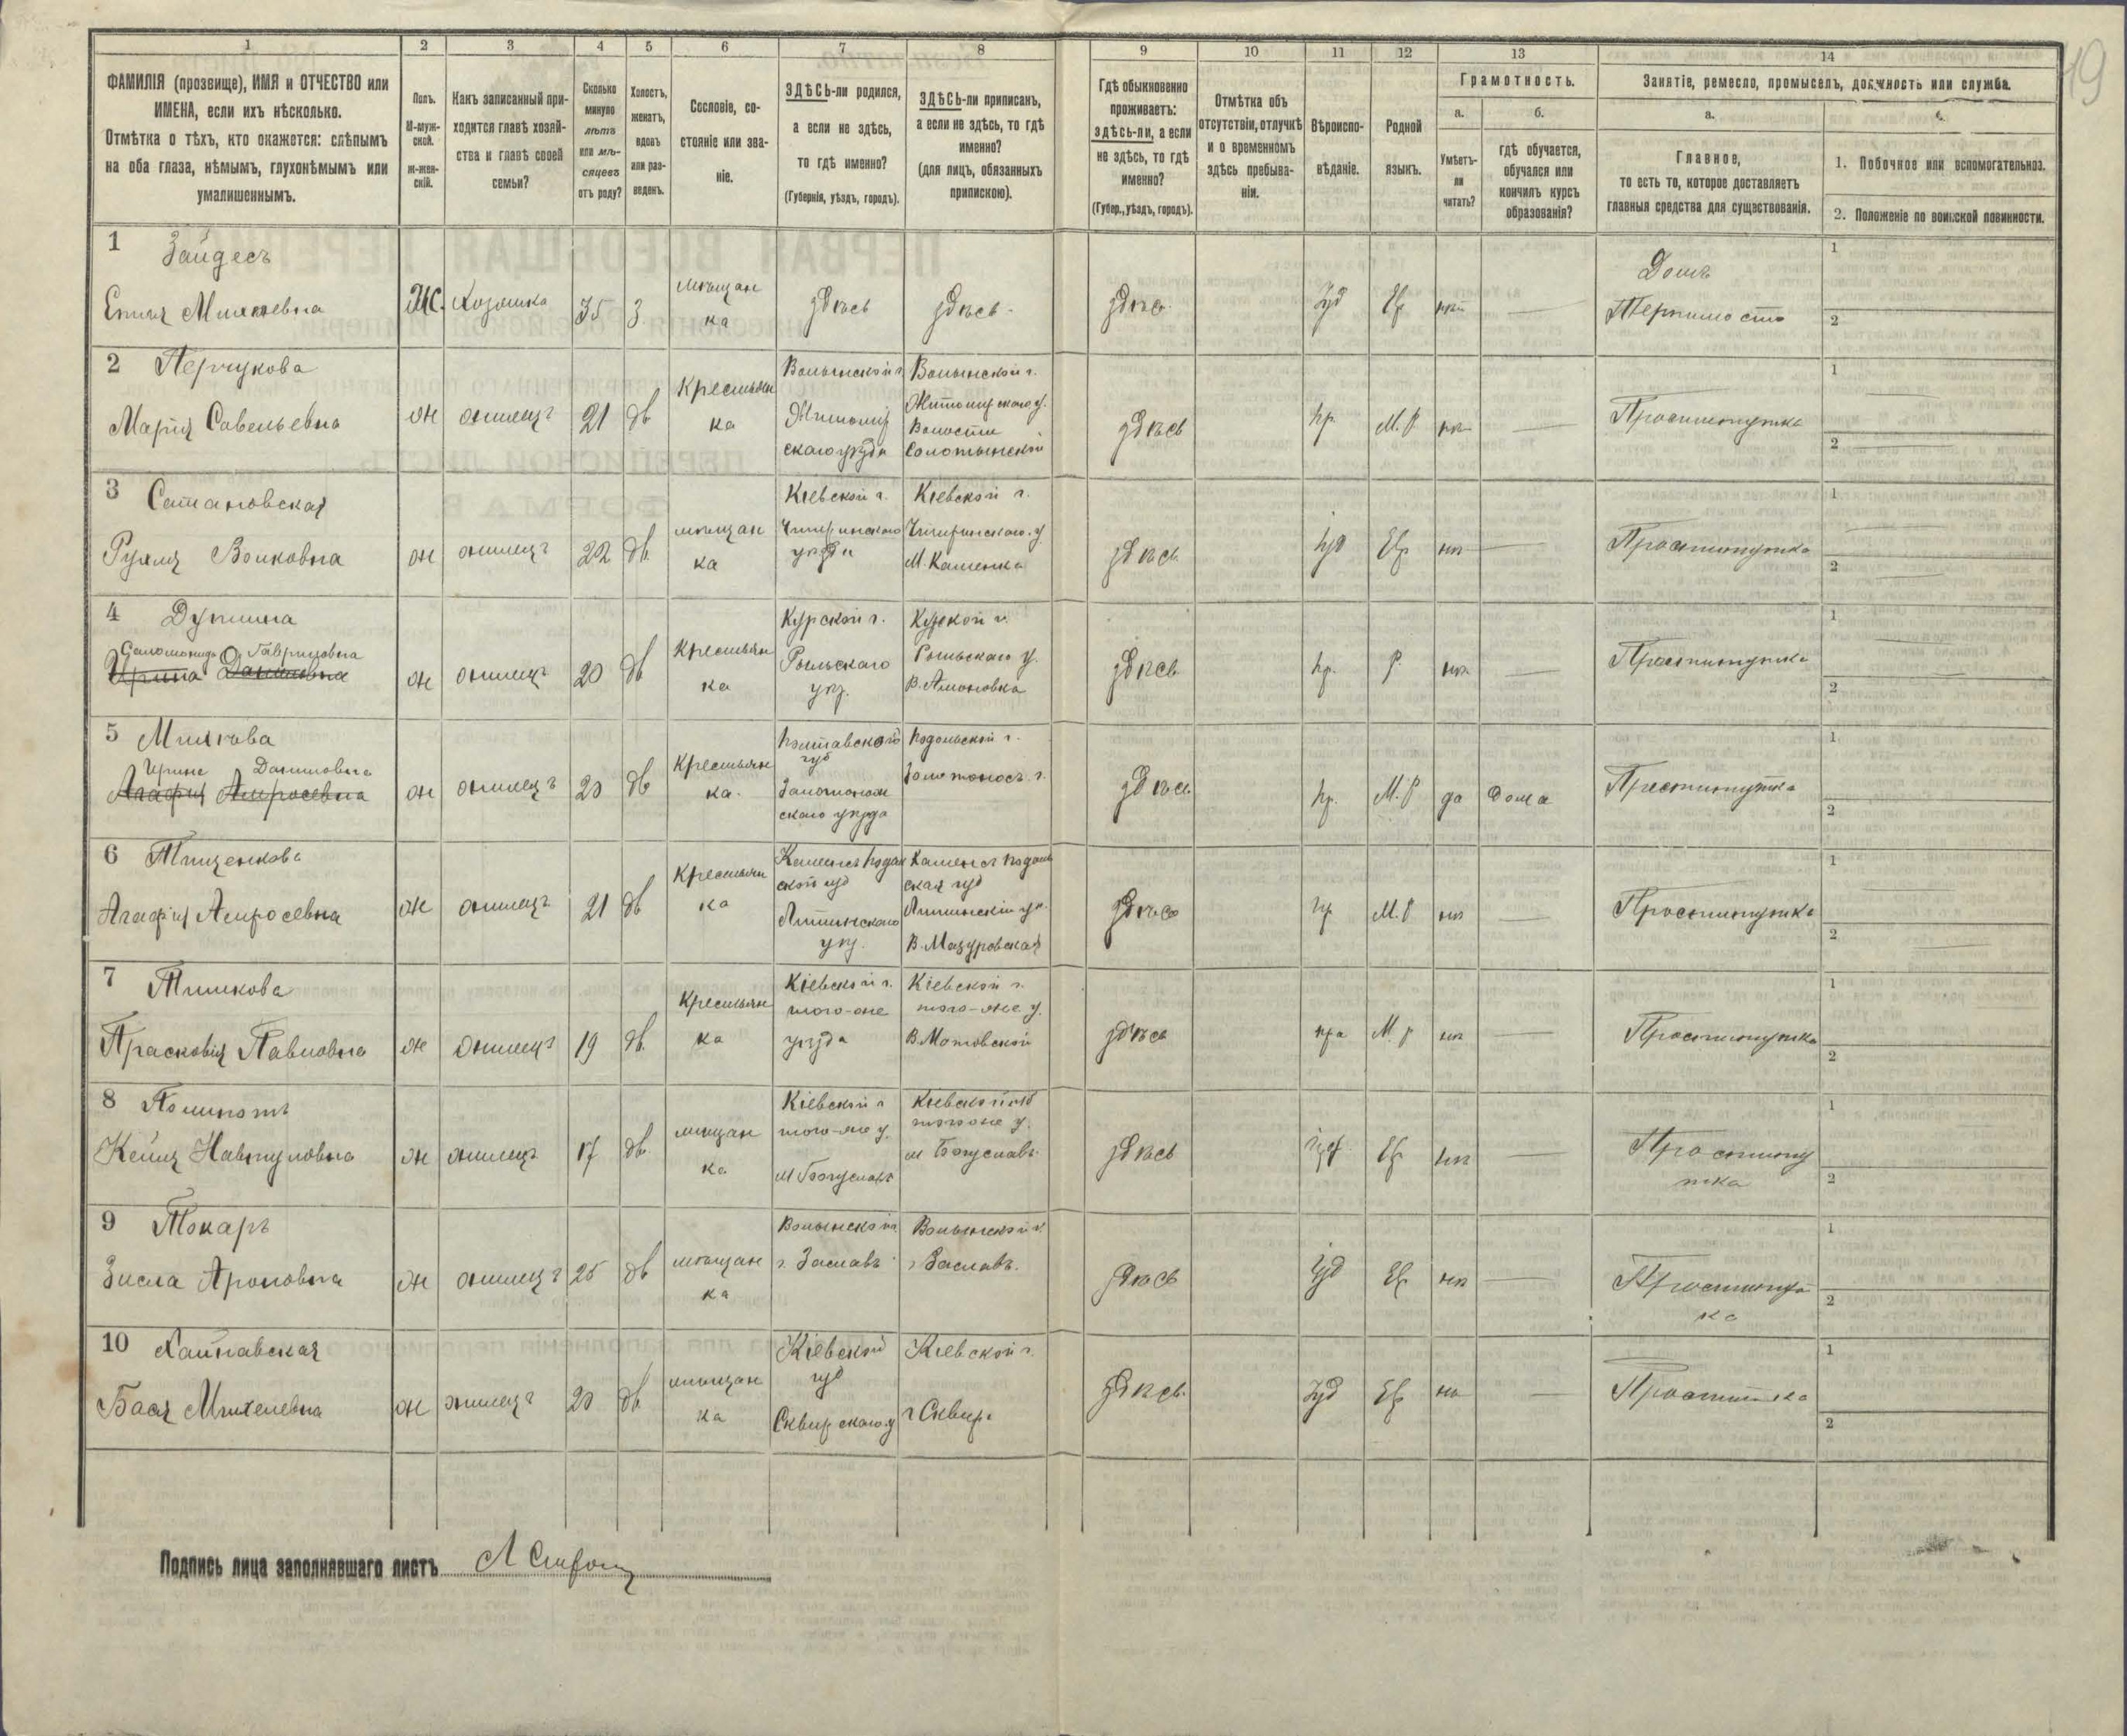 19
1
2
3
4
5
6
7
8
9
10
11
12
13
14
ФАМИЛІЯ (прозвище), ИМЯ и ОТЧЕСТВО или
ИМЕНА, если ихъ нѣсколько.
Отмѣтка о тѣхъ, кто окажется: слѣпымъ
на оба глаза, нѣмымъ, глухонѣмымъ или
умалишеннымъ.
Полъ.
М-муж-
ской.
ж-жен-
скій.
Какъ записанный при-
ходится главѣ хозяй-
ства и главѣ своей
семьи?
Сколько
минуло
лѣтъ
или мѣ-
сяцевъ
отъ роду?
Холостъ,
женатъ,
вдовъ
или раз-
веденъ.
Сословіе, со-
стояніе или зва-
ніе.
ЗДѢСЬ-ли родился,
а если не здѣсь,
то гдѣ именно?
(Губернія, уѣздъ, городъ).
ЗДѢСЬ-ли приписанъ,
а если не здѣсь, то гдѣ
именно?
(для лицъ, обязанныхъ
припискою).
Гдѣ обыкновенно
проживаетъ:
здѣсь-ли, а если
не здѣсь, то гдѣ
именно?
(Губер., уѣздъ, городъ).
Отмѣтка объ
отсутствіи, отлучкѣ
и о временномъ
здѣсь пребыва-
ніи.
Вѣроиспо-
вѣданіе.
Родной
языкъ.
Грамотность.
а.
Умѣетъ-
ли
читать?
б.
гдѣ обучается,
обучался или
кончилъ курсъ
образованія?
Занятіе, ремесло, промыселъ, должность или служба.
а.
Главное,
то есть то, которое доставляетъ
главныя средства для существованія.
1. Побочное или вспомогательное.
2. Положеніе по воинской повинности.
1 Зайдесъ
Ж. Хозяйка 35 З. мѣщан
ка
здѣсь здѣсь здѣсь Іуд Евр нѣт
Домъ
Терпимости
1
2
2 Перчукова
Марія Савельевна
ж жилецъ 21 дѣв Крестьян
ка
Волынской г.
Житомир
скаго уѣзда
Волынской г.
Житомирскаго у.
Волости
Солотвинской
здѣсь пр. М.Р нѣт Проститутка
1
2
3 Сатановская
Рухля Волковна
ж жилецъ 22 дѣв мѣщан
ка
Кіевской г.
Чигиринскаго
уѣзда
Кіевской г.
Чигиринскаго у.
М. Каменка
здѣсь іуд Евр нѣт Проститутка
1
2
4
Соломонида Гавриловна
Ирина Даниловна
ж жилецъ 20 дѣв Крестьян
ка
Курской г.
Рыльскаго
уѣз.
Курской г.
Рыльскаго у.
В. Амоновка
здѣсь пр. Р. нѣт Проститутка
1
2
5
Ирина Даниловна
Агафія Амросевна
ж жилецъ 20 дѣв Крестьян
ка
Полтавской
губ
Золотонош
скаго уѣзда
Подольской г.
здѣсь пр. М.Р да Дома Проститутка
1
2
6 Тищенкова
Агафія Амросевна
ж жилецъ 21 дѣв Крестьян
ка
Каменец Подол
ской губ
Литинскаго
уѣз.
Каменец Подоль
ская губ
Литинскій уѣ.
В. Мазуровская
здѣсь пр М.Р нѣт Проститутка
1
2
7 Тишкова
Прасковія Павловна
ж жилецъ 19 дѣв Крестьян
ка
Кіевской г.
того-же
уѣзда
Кіевской г.
того-же у.
В. Мотовской
здѣсь пра М.р нѣт Проститутка
1
2
8
ж жилецъ 17 дѣв мѣщан
ка
Кіевской г
того-же у.
м Богуславъ
Кіевской губ
того же у.
м Богуславъ
здѣсь іуд Евр нѣт Проститу
тка
1
2
9 Токаръ
Зисла Ароновна
ж жилецъ 25 дѣв мѣщан
ка
Волынской г.
г. Заславъ
Волынской г.
г. Заславъ.
здѣсь Іуд Евр нѣт Проститут
ка
1
2
10
Бася Михелевна
ж жилецъ 20 дѣв мѣщан
ка
Кіевской
губ
Сквирскаго у
Кіевской г.
г Сквира
здѣсь. Іуд Евр нѣ Проститутка
1
2
Подпись лица заполнявшаго листъ